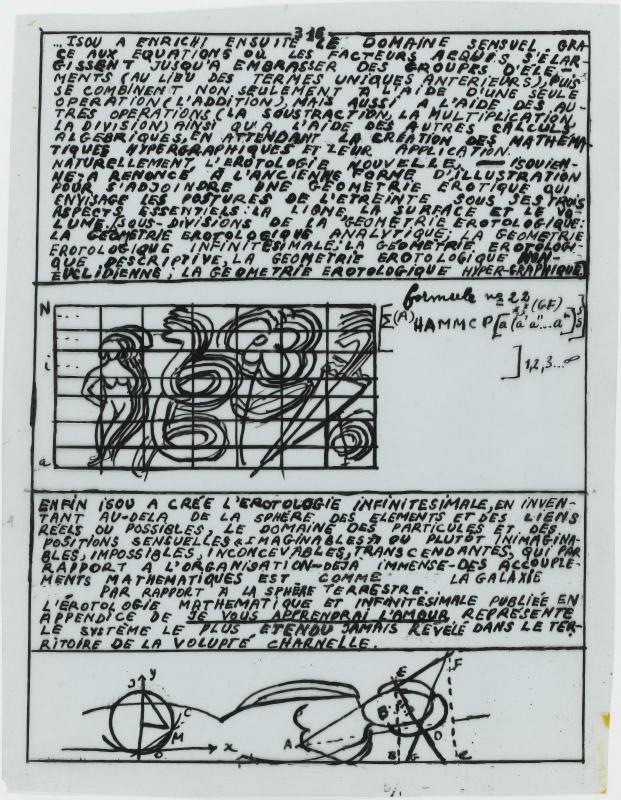 316
... ISOU A ENRICHI ENSUITE LE DOMAINE SENSUEL, GRA-
CE AUX EQUATIONS OÙ LES FACTEURS ACQUIS, S'ÉLAR-
GISSENT JUSQU'A EMBRASSER DES GROUPES D'ELE-
MENTS (AU LIEU DES TERMES UNIQUES ANTERIEURS), PUIS
SE COMBINENT NON SEULEMENT A L'AIDE D'UNE SEULE
OPERATION (L'ADDITION), MAIS AUSSI A L'AIDE DES AU-
TRES OPERATIONS (LA SOUSTRACTION, LA MULTIPLICATION,
LA DIVISION) AINSI QU'A L'AIDE DES AUTRES CALCULS
ALGEBRIQUES, EN ATTENDANT LA CRÉATION DES MATHÉMA-
TIQUES HYPERGRAPHIQUES ET LEUR APPLICATION.
NATURELLEMENT, L'EROTOLOGIE NOUVELLE — ISOUIEN-
NE - A RENONCÉ A L'ANCIENNE FORME D'ILLUSTRATION
POUR S'ADJOINDRE UNE GEOMETRIE EROTIQUE QUI
ENVISAGE LES POSTURES DE L'ETREINTE SOUS SES TROIS
ASPECTS ESSENTIELS: LA LIGNE, LA SURFACE ET LE VO-
LUME. SOUS-DIVISIONS DE LA GEOMETRIE EROTOLOGIQUE:
LA GEOMETRIE EROTOLOGIQUE ANALYTIQUE; LA GEOMETRIE
EROTOLOGIQUE INFINITESIMALE; LA GEOMETRIE EROTOLOGI-
QUE DESCRIPTIVE, LA GEOMETRIE EROTOLOGIQUE NON-
EUCLIDIENNE; LA GEOMETRIE EROTOLOGIQUE HYPER-GRAPHIQUE.
formule nº 22
N
i
a
Σ(A) HAMMCP [a (a' a"... aⁿ)
(GF)
] 1,2,3... ∞
ENFIN ISOU A CRÉE L'EROTOLOGIE INFINITESIMALE, EN INVEN-
TANT AU-DELA DE LA SPHÈRE DES ELEMENTS ET DES LIENS
RÉELS OU POSSIBLES, LE DOMAINE DES PARTICULES ET DES
POSITIONS SENSUELLES «IMAGINABLES» OU PLUTÔT INIMAGINA-
BLES, IMPOSSIBLES, INCONCEVABLES, TRANSCENDANTES, QUI PAR
RAPPORT A L'ORGANISATION-DEJA IMMENSE-DES ACCOUPLE-
MENTS MATHEMATIQUES EST COMME LA GALAXIE
PAR RAPPORT A LA SPHÈRE TERRESTRE.
L'ÉROTOLOGIE MATHEMATIQUE ET INFINITÉSIMALE PUBLIÉE EN
APPENDICE DE JE VOUS APPRENDRAI L'AMOUR REPRÉSENTE
LE SYSTÈME LE PLUS ETENDU JAMAIS REVÉLÉ DANS LE TER-
RITOIRE DE LA VOLUPTÉ CHARNELLE.
J
y
C
M
O
x
A
E
F
B
P
D
B
G
C